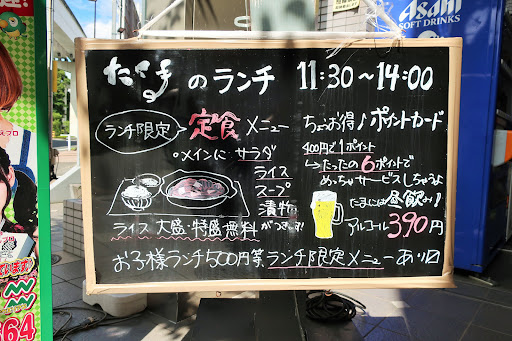 Asahi
SOFT DRINKS
のランチ 11:30~14:00
ランチ限定
定食メニュー
○メインに サラダ
ライス
スープ
漬物
がつきます!
ライス 大盛・特盛無料
ちょっとお得♪ポイントカード
400円で1ポイント
たったの6ポイントで
めっちゃサービスしちゃうよ
たまには昼飲み♪
アルコール390円
お子様ランチ500円等ランチ限定メニューあり
64